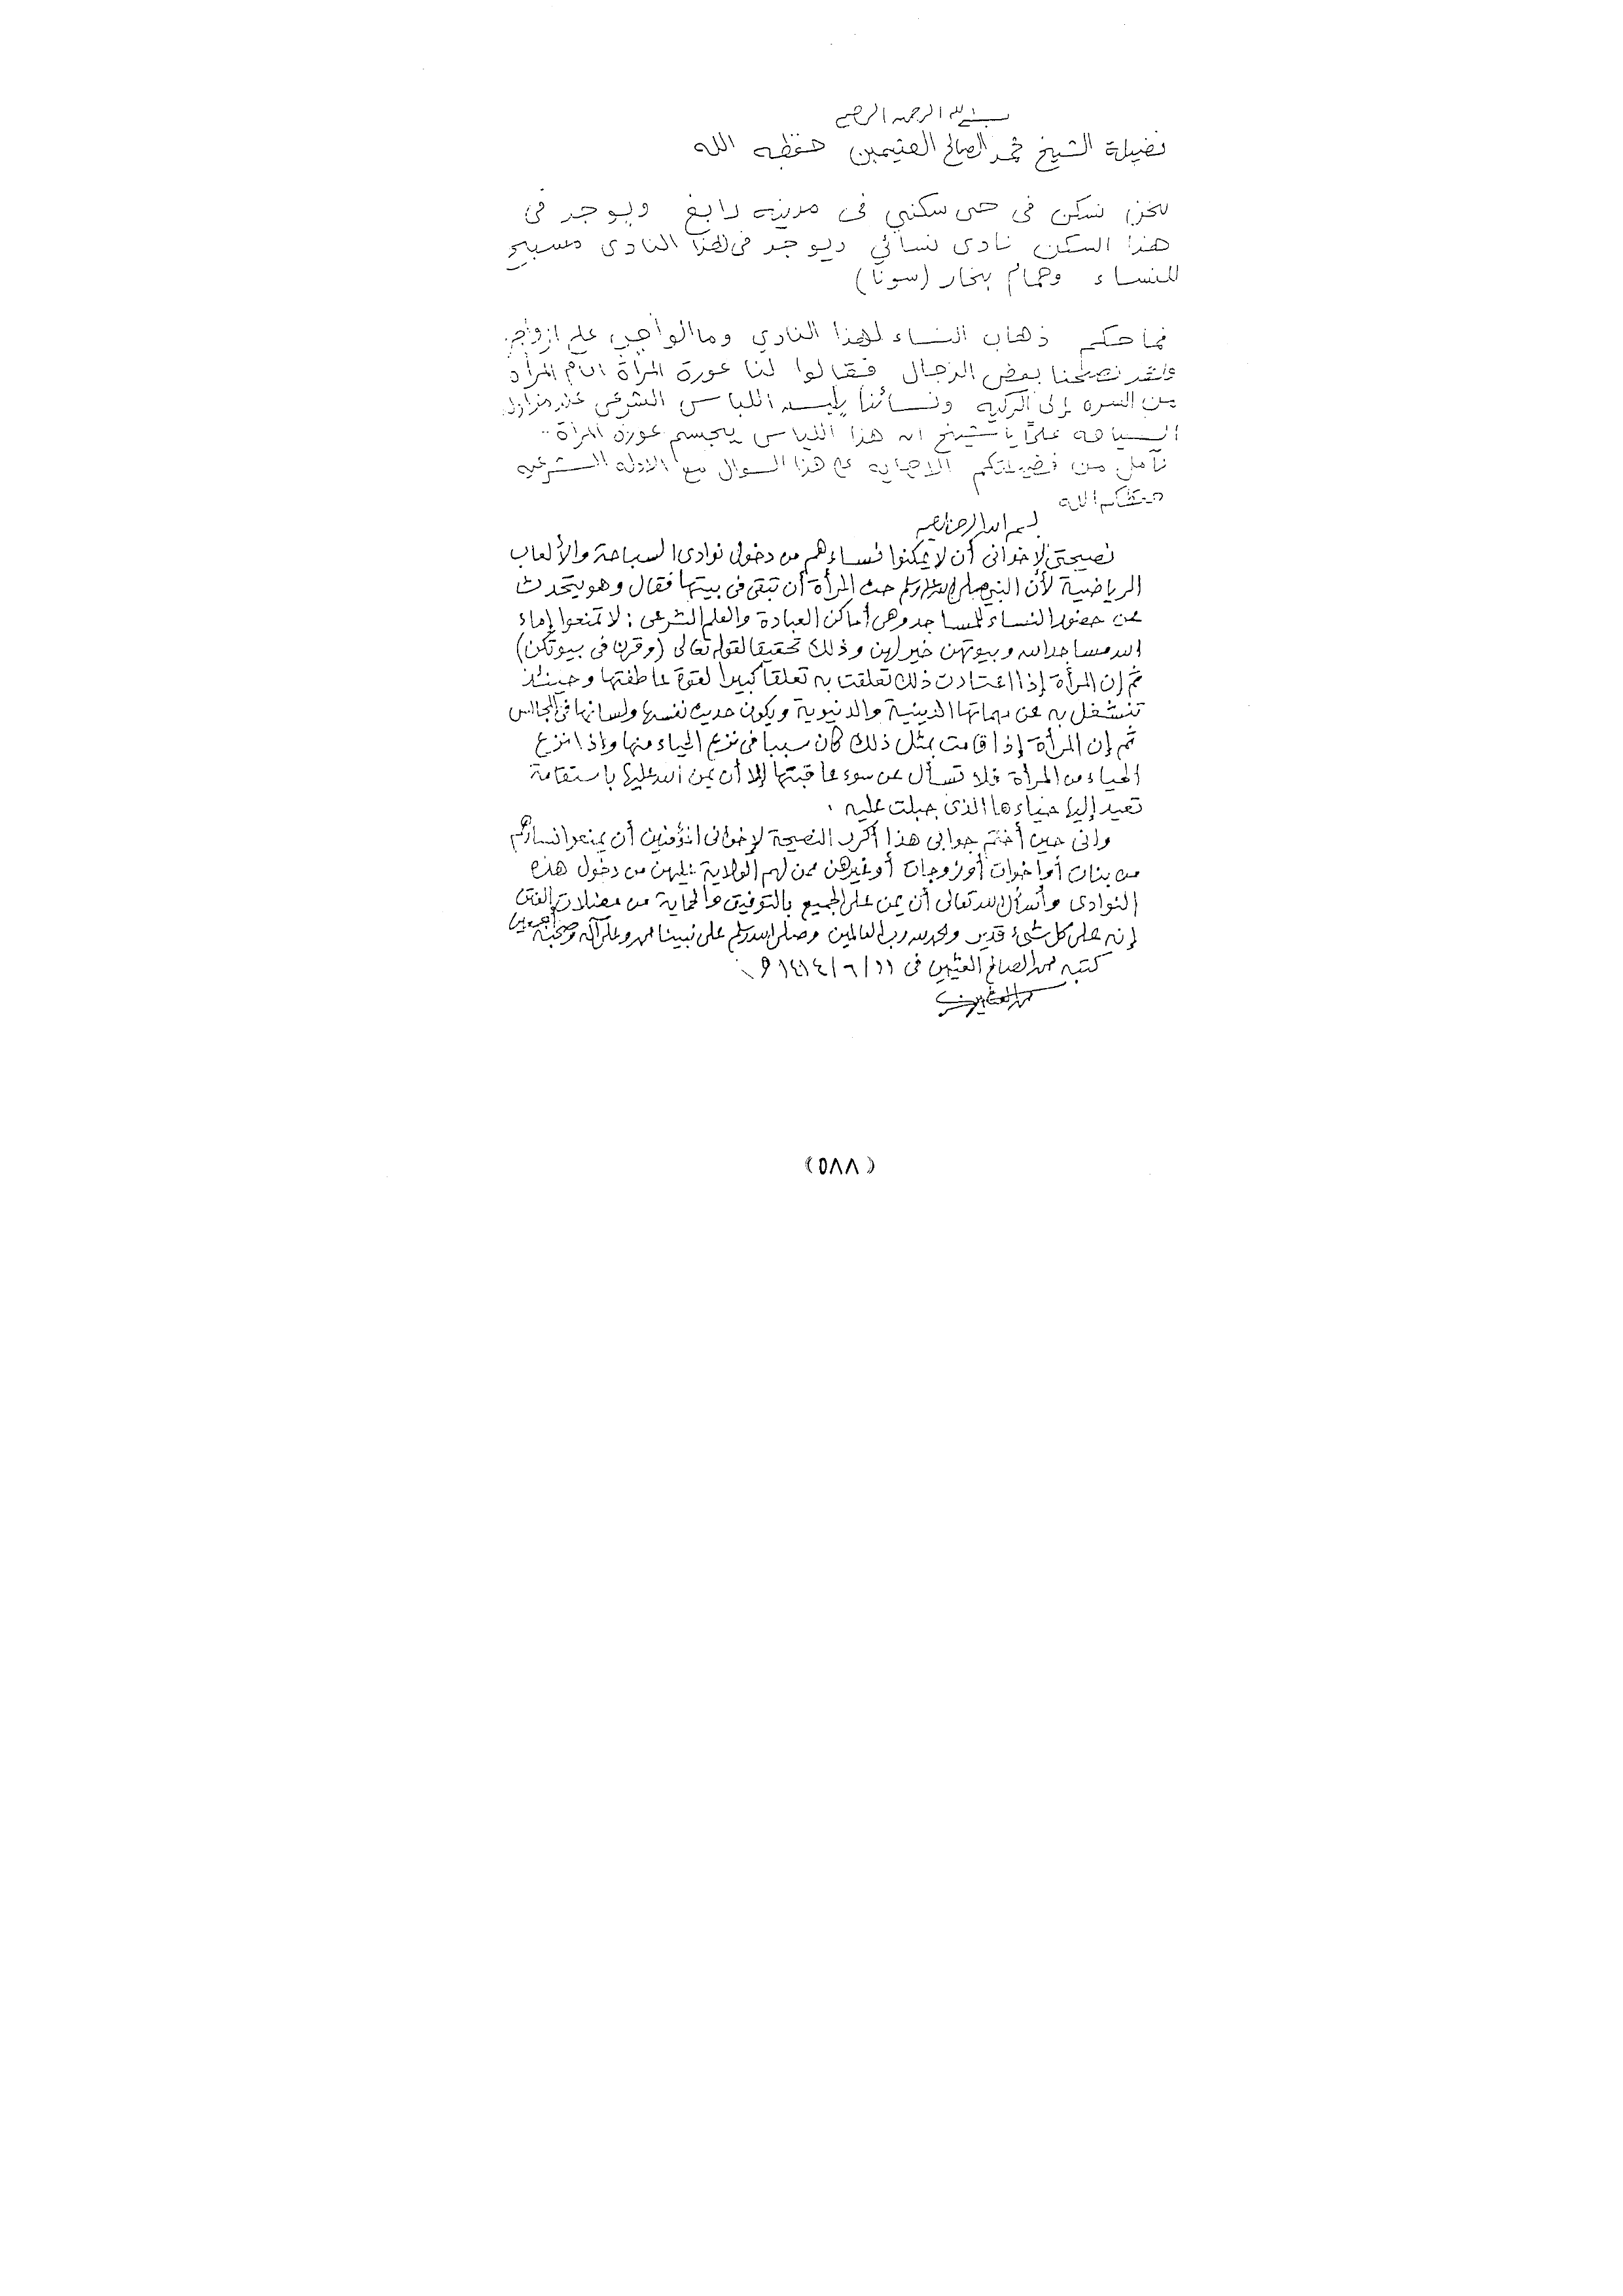 بسم الله الرحمن الرحيم
فضيلة الشيخ محمد الصالح العثيمين حفظه الله
نحن نسكن فى حى سكني فى مدينه رابغ ويوجد فى
هذا السكن نادى نسائي ويوجد فى هذا النادى مسبح
للنساء وحمام بخار (سونا)
فما حكم ذهاب النساء لهذا النادي وما الواجب على ازواجهن
ولقد نصحنا بعض الرجال فقالوا لنا عورة المرأة امام المرأة
من السره إلى الركبه ونسائنا يلبسن اللباس الشرعى عند مزاولة
السباحه علماً يا شيخ ان هذا اللباس يجسم عورة المرأة ..
نأمل من فضيلتكم الاجابه على هذا السوال مع الادله الشرعيه
حفظكم الله
بسم الله الرحمن الرحيم
نصيحتى لإخوانى أن لا يمكنوا نساءهم من دخول نوادى السباحة والألعاب
الرياضية لأن النبى صلى الله عليه وسلم حث المرأة أن تبقى فى بيتها فقال وهو يتحدث
عن حضور النساء للمساجد وهى أماكن العبادة والعلم الشرعى : لا تمنعوا إماء
الله مساجد الله وبيوتهن خير لهن وذلك تحقيقا لقوله تعالى (وقرن فى بيوتكن)
ثم إن المرأة إذا اعتادت ذلك تعلقت به تعلقا كبيرا لقوة عاطفتها وحينئذ
تنشغل به عن مهماتها الدينية والدنيوية ويكون حديث نفسها ولسانها فى المجالس
ثم إن المرأة إذا قامت بمثل ذلك كان سببا فى نزع الحياء منها وإذا نزع
الحياء من المرأة فلا تسأل عن سوء عاقبتها إلا أن يمن الله عليها باستقامة
تعيد إليها حياءها الذى جبلت عليه .
وإنى حين أختم جوابى هذا أكرر النصيحة لإخوانى المؤمنين أن يمنعوا نساءهم
من بنات أو أخوات أو زوجات أو غيرهن ممن لهم الولاية عليهن من دخول هذه
النوادى وأسأل الله تعالى أن يمن على الجميع بالتوفيق والحماية من مضلات الفتن
إنه على كل شىء قدير والحمد لله رب العالمين وصلى الله وسلم على نبينا محمد وعلى آله وصحبه أجمعين
كتبه محمد الصالح العثيمين فى ١١/ ٦/ ١٤١٤ هـ
محمد العثيمين
(٥٨٨)